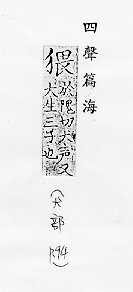 四聲篇海
猥
於隈切犬声又
犬生三子也
(犬部 P.94)